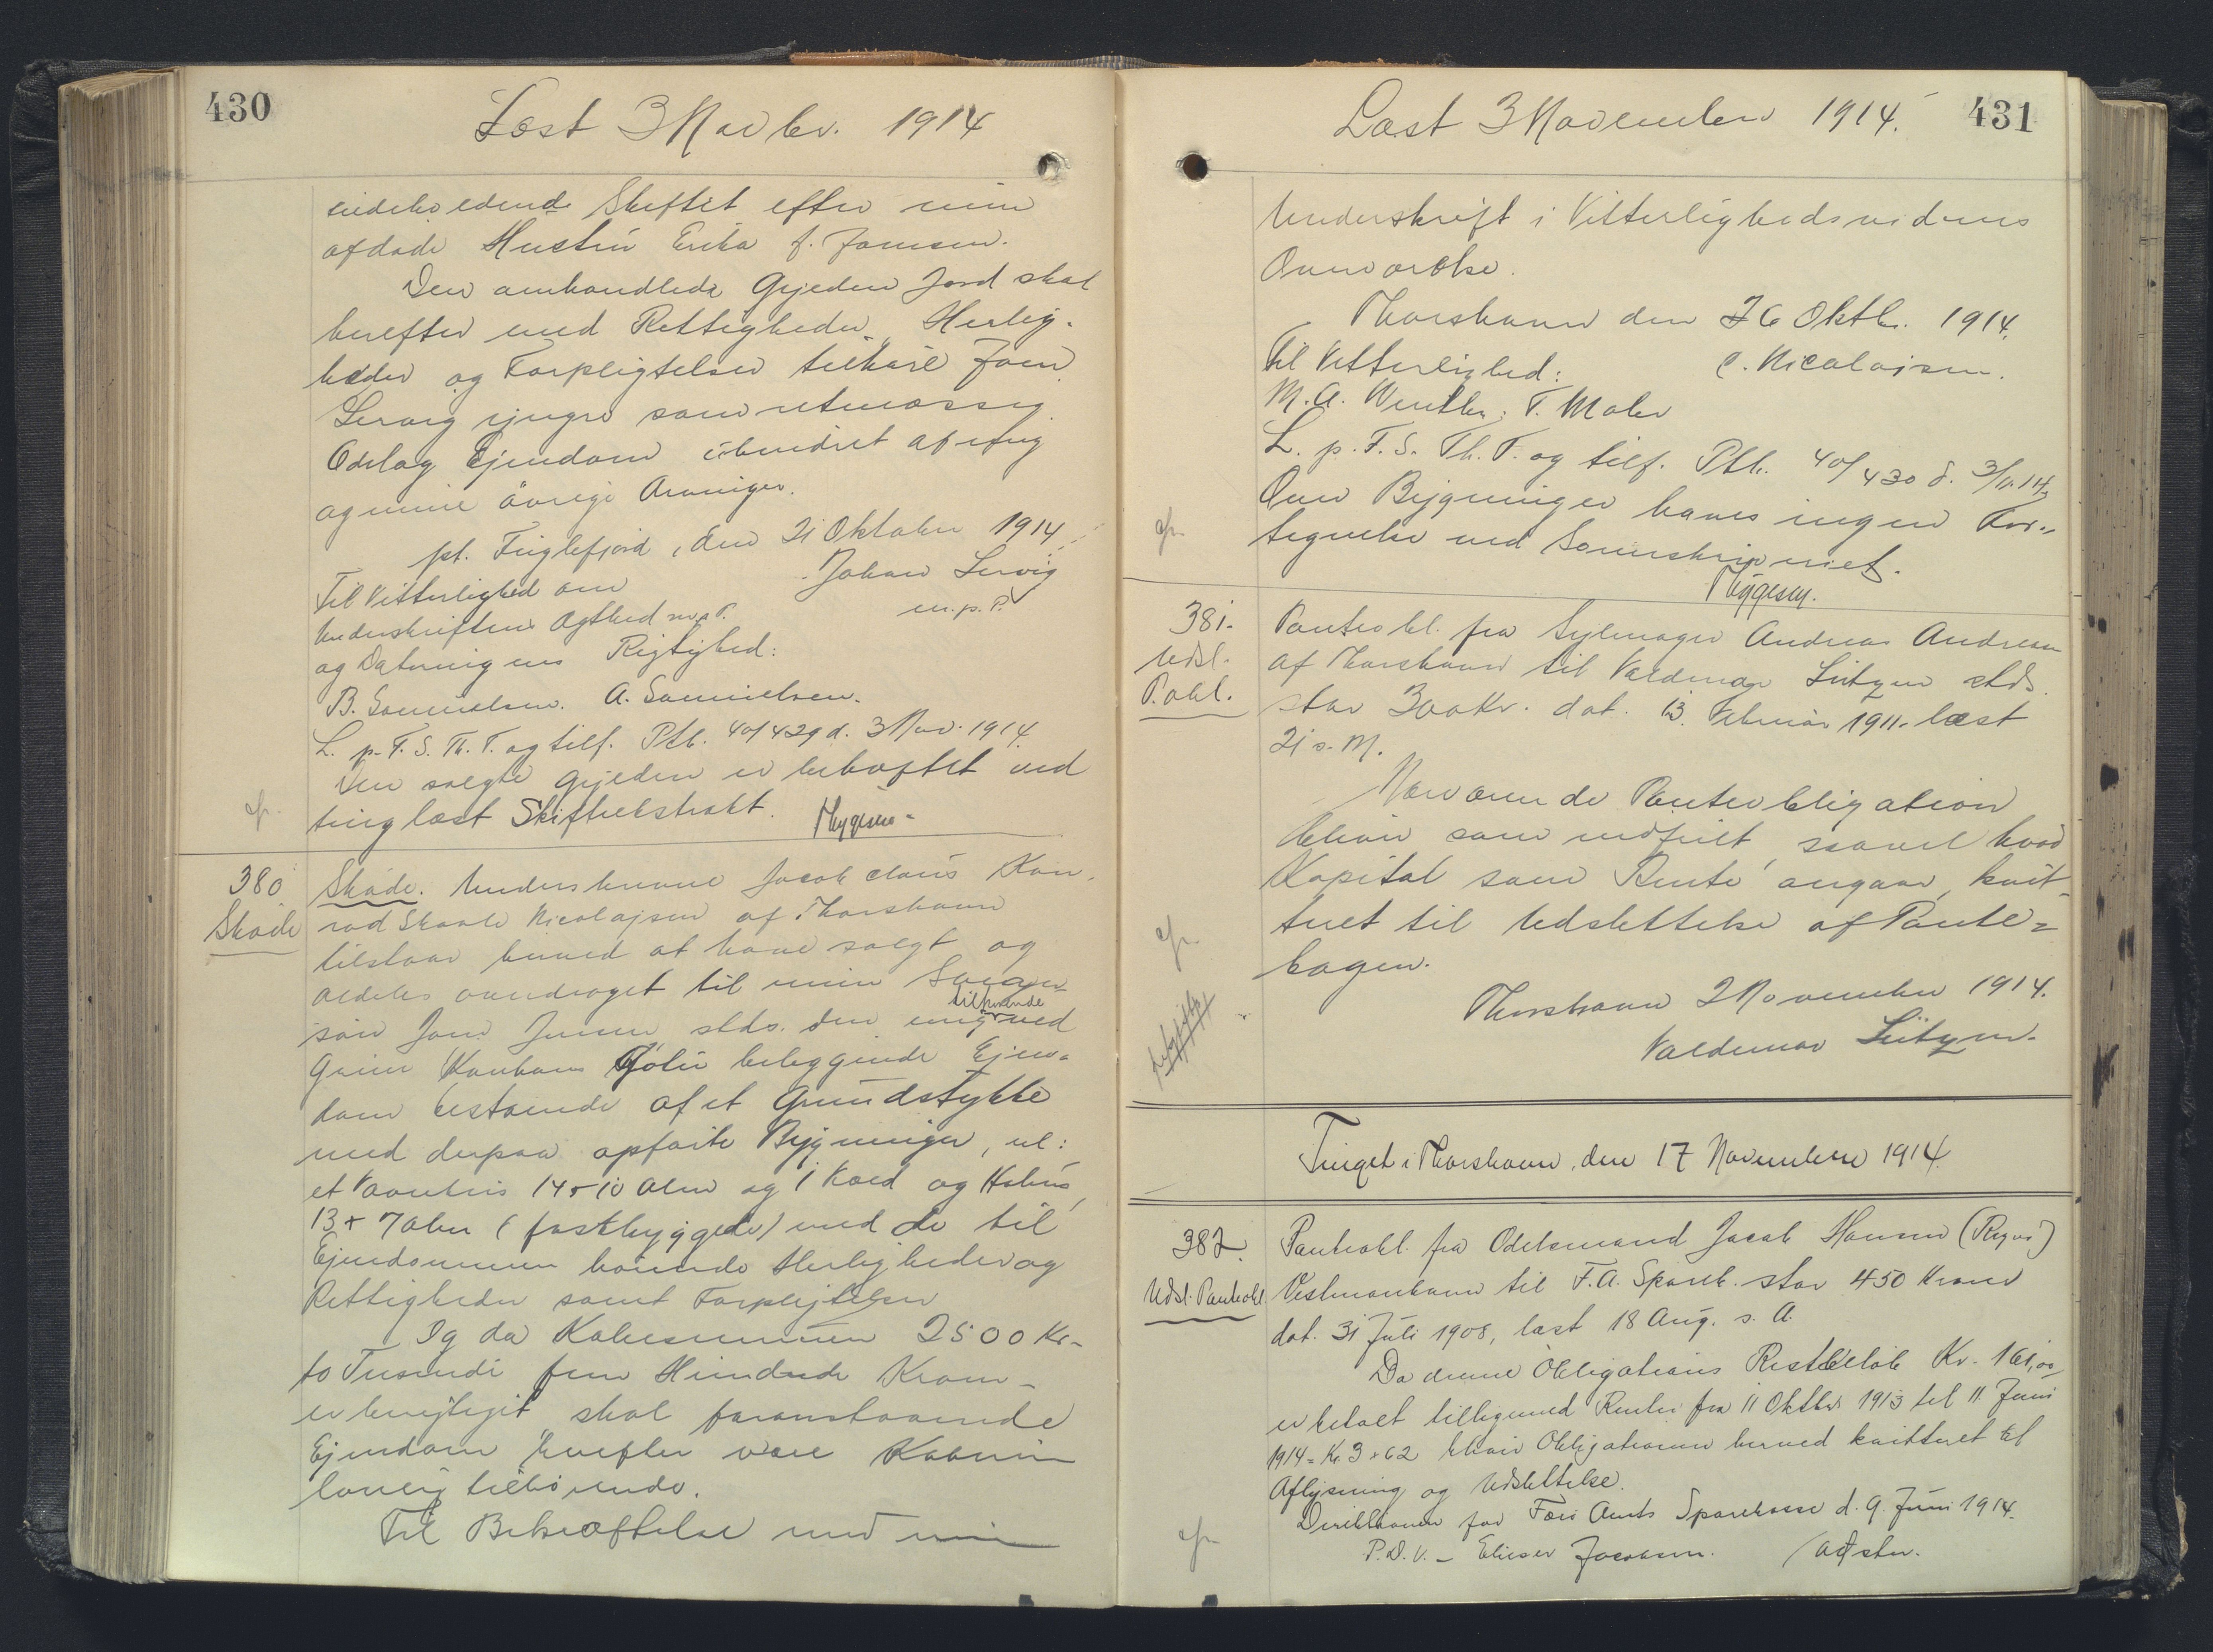 430
Læst 3 Novbr. 1914
indeholdende Skiftet efter min
afdøde Hustru Erika f. Joensen.
Den omhandlede Gyeden Jord skal
herefter med Rettigheder, Herlig-
heder og Forpligtelser tilhøre Joen
Lervig yngre som retmæssig
Odelag Ejendom ubehindret af mig
og mine øvrige Arvinger.
pt. Fuglefjord, den 21 Oktober 1914
Til Vitterlighed om
Johan Lervig
Underskriftens Ægthed
m. p. P.
og Dateringens Rigtighed:
B. Samuelsen. A. Samuelsen.
L. p. F. S. Th. T. og tilf. Ptb. 40/429 d. 3 Nov. 1914.
Den solgte Gyeden er behæftet med
tinglæst Skifteekstrakt. Thygesen
380
Skøde
Skøde. Undertegnede Jacob Claus Kon-
rad Skaale Nicolajsen af Thorshavn
tilstaar herved at have solgt og
aldeles overdraget til min Sviger-
søn Joen Jensen stds. den mig tilhørende ved
Grim Kambans Gøta beliggende Ejen-
dom bestaaende af et Grundstykke
med derpaa opførte Bygninger, nl:
et Vaanhus 14 x 10 Alen og 1 Koed og Høhus,
13 x 7 Alen (fastbyggede) med de til
Ejendommen hørende Herligheder og
Rettigheder samt Forpligtelser
Og da Købesummen 2500 Kr-
to Tusinde fem Hundrede Kroner-
er berigtiget skal foranstaaende
Ejendom herefter være Køberen
lovlig tilhørende.
Til Bekræftelse med min
431
Læst 3 November 1914.
Underskrift i Vitterlighedsvidners
Overværelse.
Thorshavn den 26 Oktbr. 1914.
Til Vitterlighed:
C. Nicolajsen.
M. A. Winther. T. Mohr
L. p. F. S. Th. T. og tilf. Ptb. 40/430 d. 3/11.14,
Over Bygninger haves ingen For-
tegnelse ved Sorenskriveriet.
Thygesen.
381.
Udsl.
P.obl.
Panteobl. fra Sejlmager Andreas Andreasen
af Thorshavn til Valdemar Lützen stds.
stor 300 Kr. dat. 13. Februar 1911. læst
21 s. M.
Nærværende Panteobligation
bliver som indfriet, saavel hvad
Kapital som Rente angaar, kvit-
teret til Udslettelse af Pante-
bogen.
Thorshavn 2 November 1914.
Valdemar Lützen.
Tinget i Thorshavn, den 17 November 1914
382.
Udsl. Panteobl.
Panteobl. fra Odelsmand Jacob Hansen
Vestmanhavn til F.A. Spareb. stor 450 Kroner
dat. 31 Juli 1908, læst 18 Aug. s. A.
Da denne Obligations Restbeløb Kr. 161,00
er betalt tilligemed Renter fra 11 Oktbr 1913 til 11 Juni
1914 = Kr. 3 x 62 bliver Obligationen herved kvitteret til
Aflysning og Udslettelse.
Direktionen for Færø Amts Sparekasse d. 9. Juni 1914.
P. D. V. - Elieser Jacobsen.